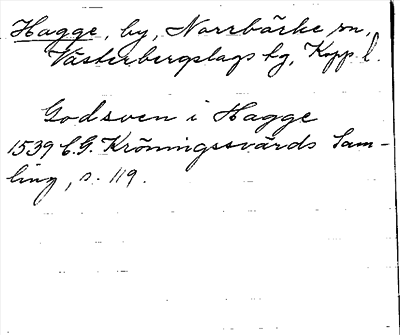 Hagge, by, Norrbärke sn,
Västerbergslags bg, Kopp. l.
Godsven i Hagge
1539 C.G. Kröningssvärds Sam-
ling, s. 119.